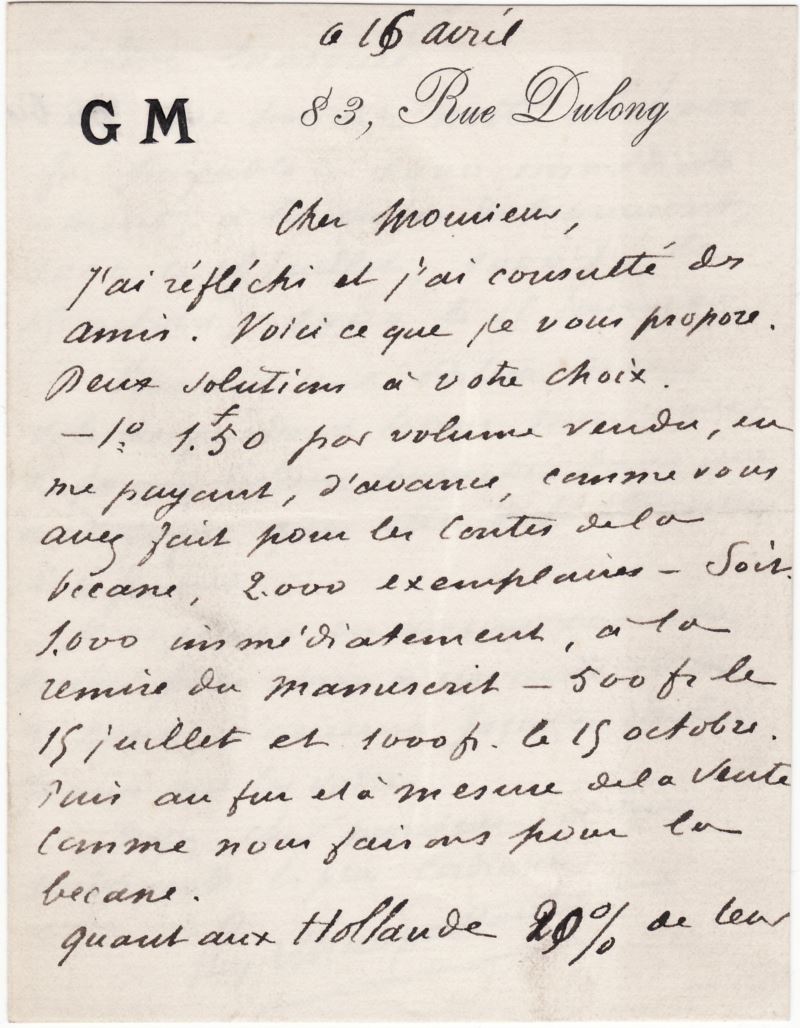 16 avril
G M
83, Rue Dulong
Cher Monsieur,
J'ai réfléchi et j'ai consulté des
amis. Voici ce que je vous propose.
Deux solutions à votre choix.
— 1º 1.f50 par volume vendu, en
me payant, d'avance, comme vous
avez fait pour les Contes de la
becane, 2.000 exemplaires — Soit.
1.000 immédiatement, à la
remise du manuscrit — 500 fr le
15 juillet et 1000 fr. le 15 octobre.
Puis au fur et à mesure de la vente
comme nous faisons pour la
becane.
quant aux Hollande 20% de leur